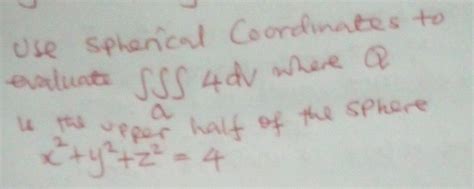 Use Spherical Coordinates to
evaluate ∫∫∫ 4dv where Q
Q
is the upper half of the sphere
x²+y²+z² = 4